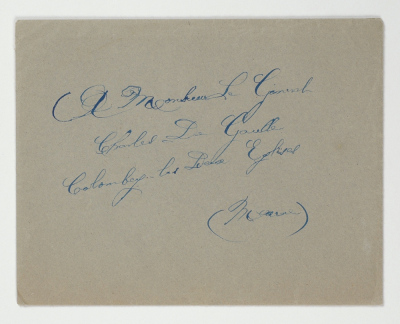 A Monsieur Le General
Charles De Gaulle
Colombey-les Deux Eglises
(Marne)